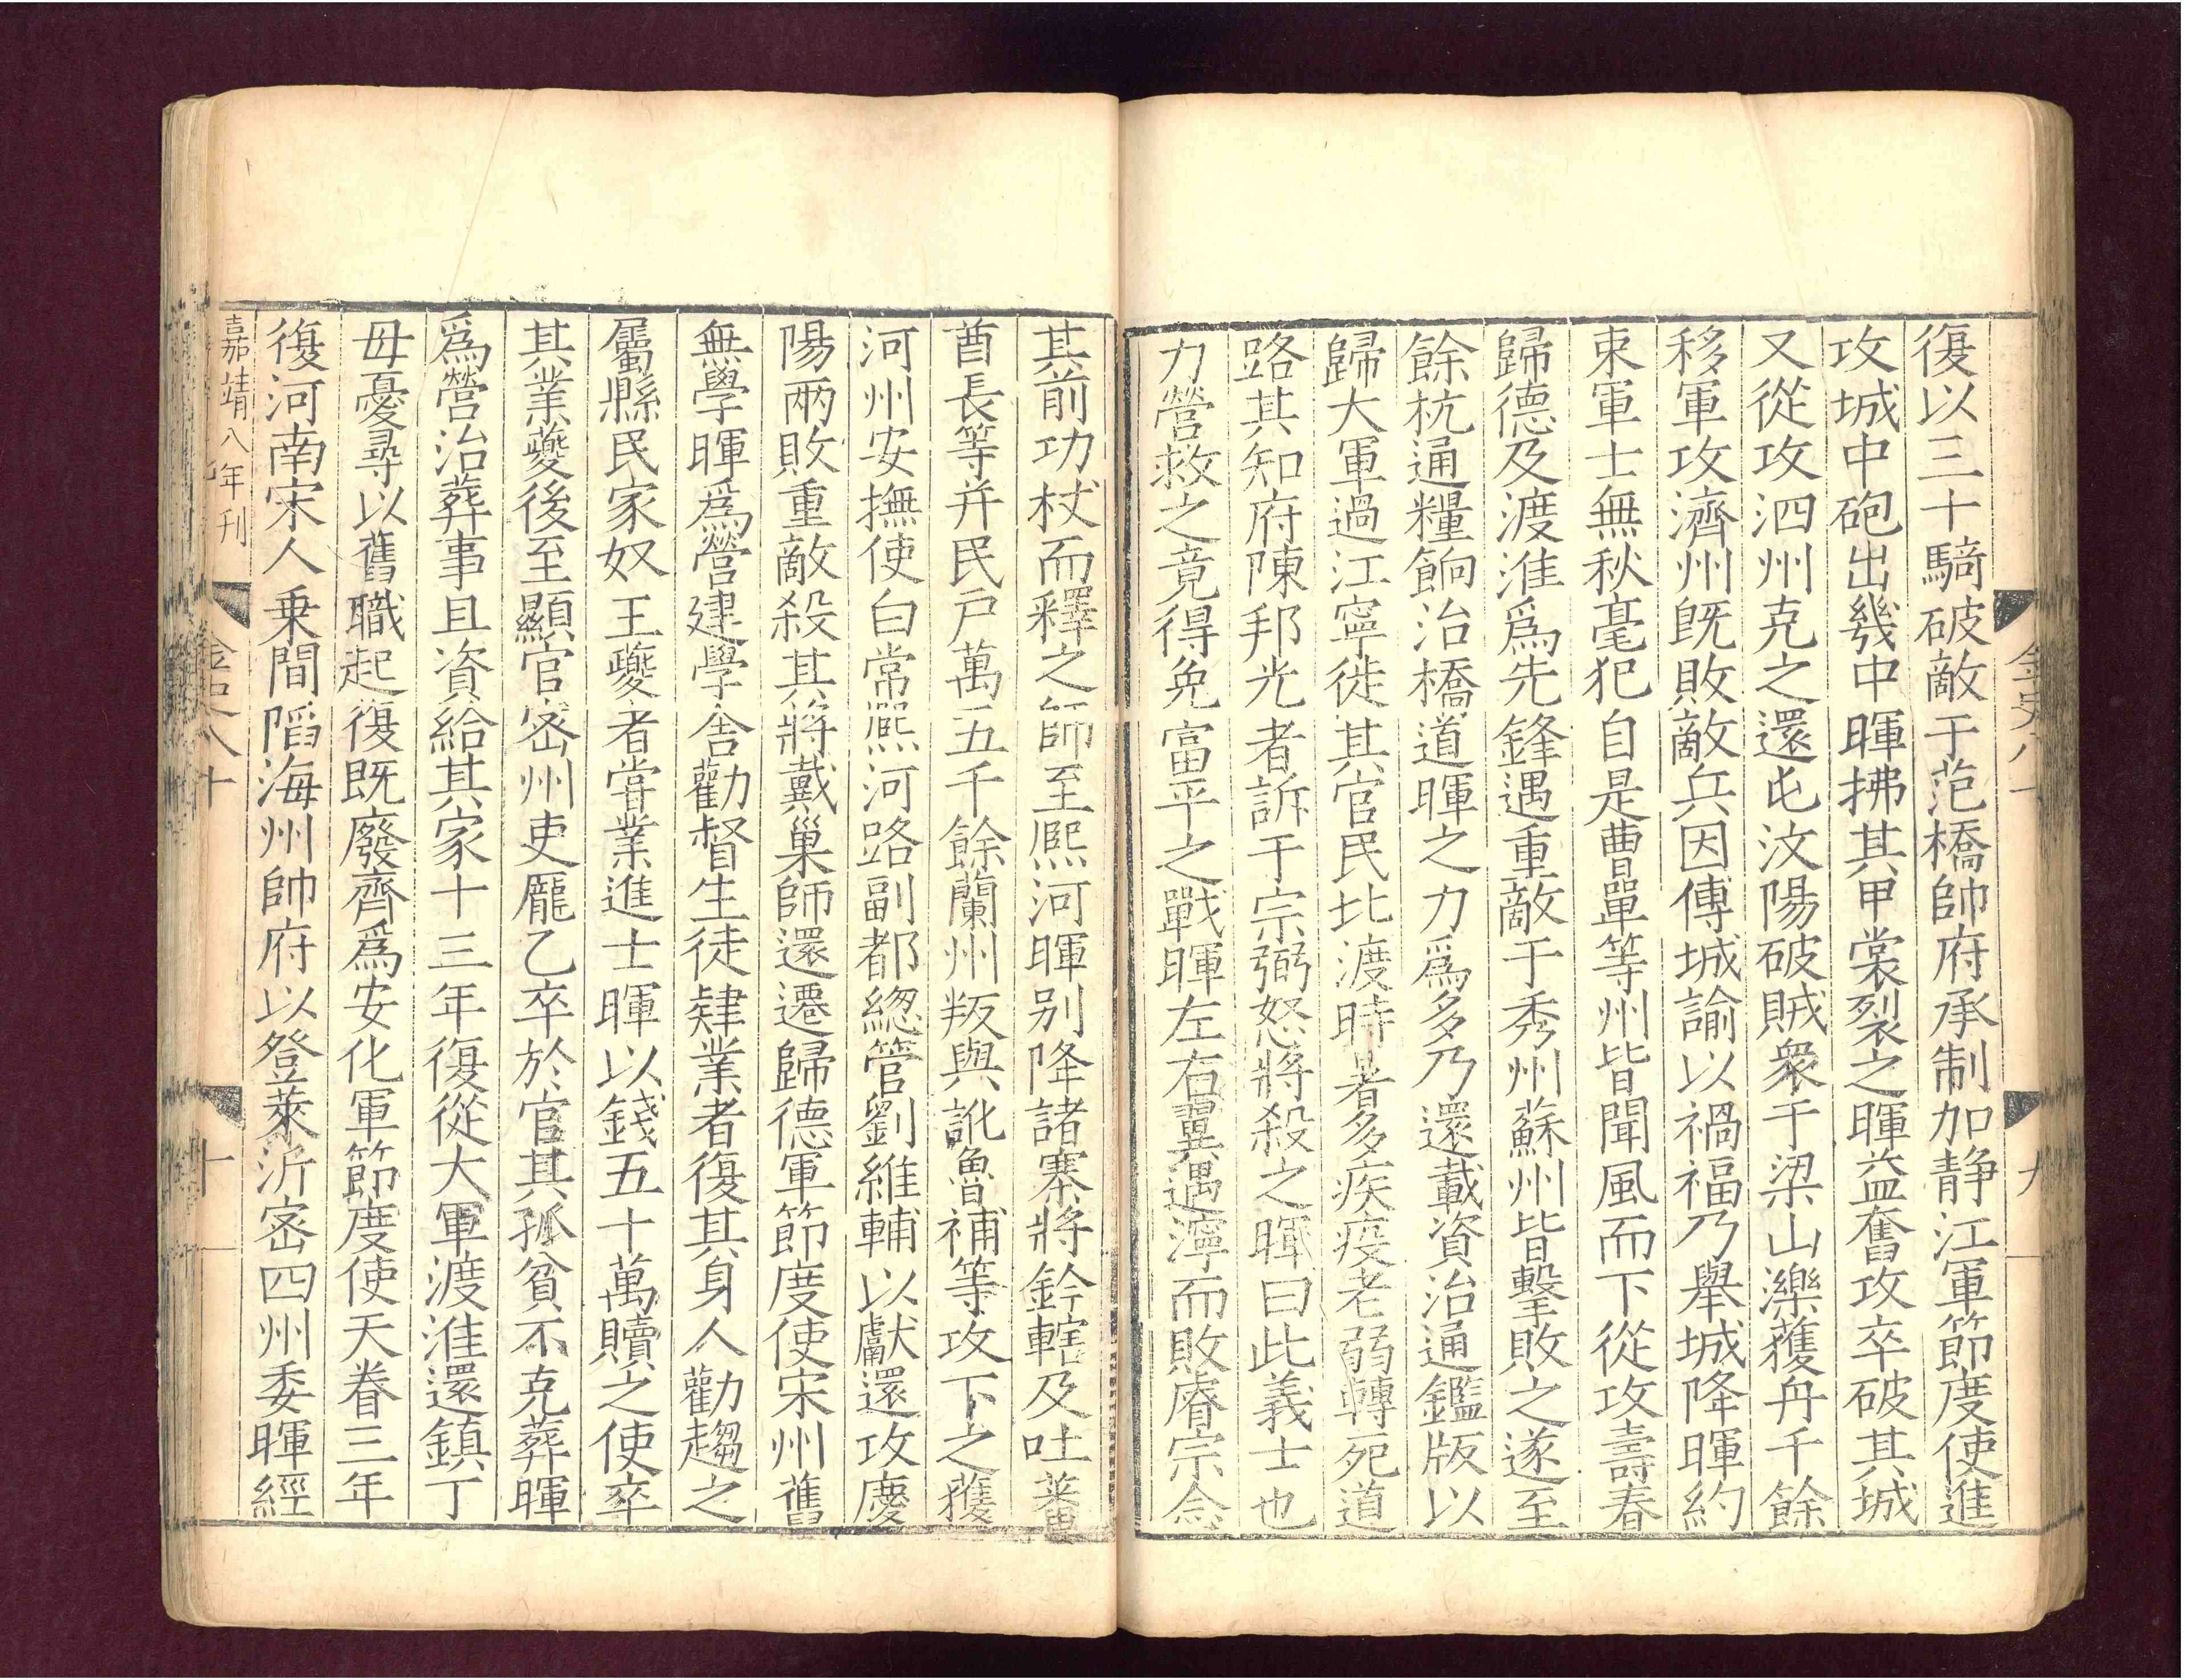 復以三十騎破敵于范橋帥府承制加靜江軍節度使進
攻城中砲出幾中暉拂其甲裳裂之暉益奮攻卒破其城
又從攻泗州克之還屯汶陽破賊衆于梁山濼獲舟千餘
移軍攻濟州既敗敵兵因傅城諭以禍福乃舉城降暉約
束軍士無秋毫犯自是曹單等州皆聞風而下從攻壽春
歸德及渡淮爲先鋒遇重敵于秀州蘇州皆擊敗之遂至
餘杭通糧餉治橋道暉之力爲多乃還載資治通鑑版以
歸大軍過江寧徙其官民北渡時暑多疾疫老弱轉死道
路其知府陳邦光者訴于宗弼怒將殺之暉曰此義士也
力營救之竟得免富平之戰暉左右翼遇濘而敗睿宗念
金史八十
九
其前功杖而釋之師至熙河暉别降諸寨將鈐轄及吐蕃
酋長等并民戶萬五千餘蘭州叛與訛魯補等攻下之獲
河州安撫使白常熙河路副都緫管劉維輔以獻還攻慶
陽兩敗重敵殺其將戴巢師還遷歸德軍節度使宋州舊
無學暉爲營建學舍勸督生徒肄業者復其身人勸趨之
屬縣民家奴王夔者嘗業進士暉以錢五十萬贖之使卒
其業夔後至顯官密州吏龐乙卒於官其孤貧不克葬暉
爲營治葬事且資給其家十三年復從大軍渡淮還鎮丁
母憂尋以舊職起復既廢齊爲安化軍節度使天眷三年
復河南宋人乗間陷海州帥府以登萊沂密四州委暉經
嘉靖八年刊
金史八十
十